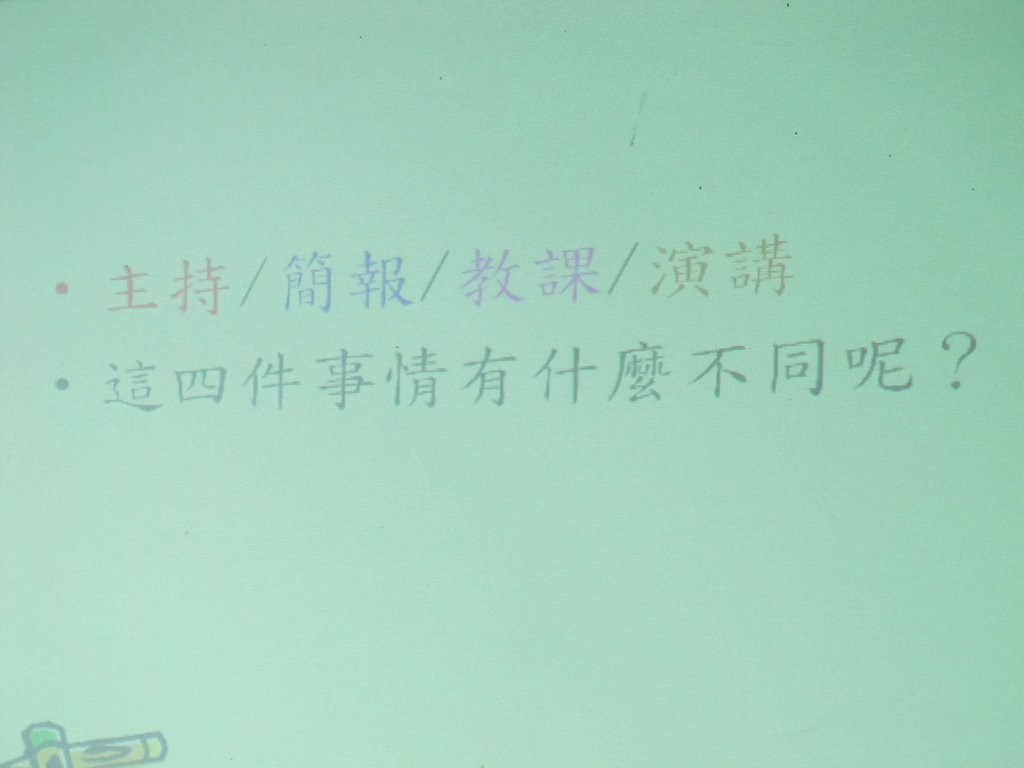 • 主持/簡報/教課/演講
• 這四件事情有什麼不同呢？